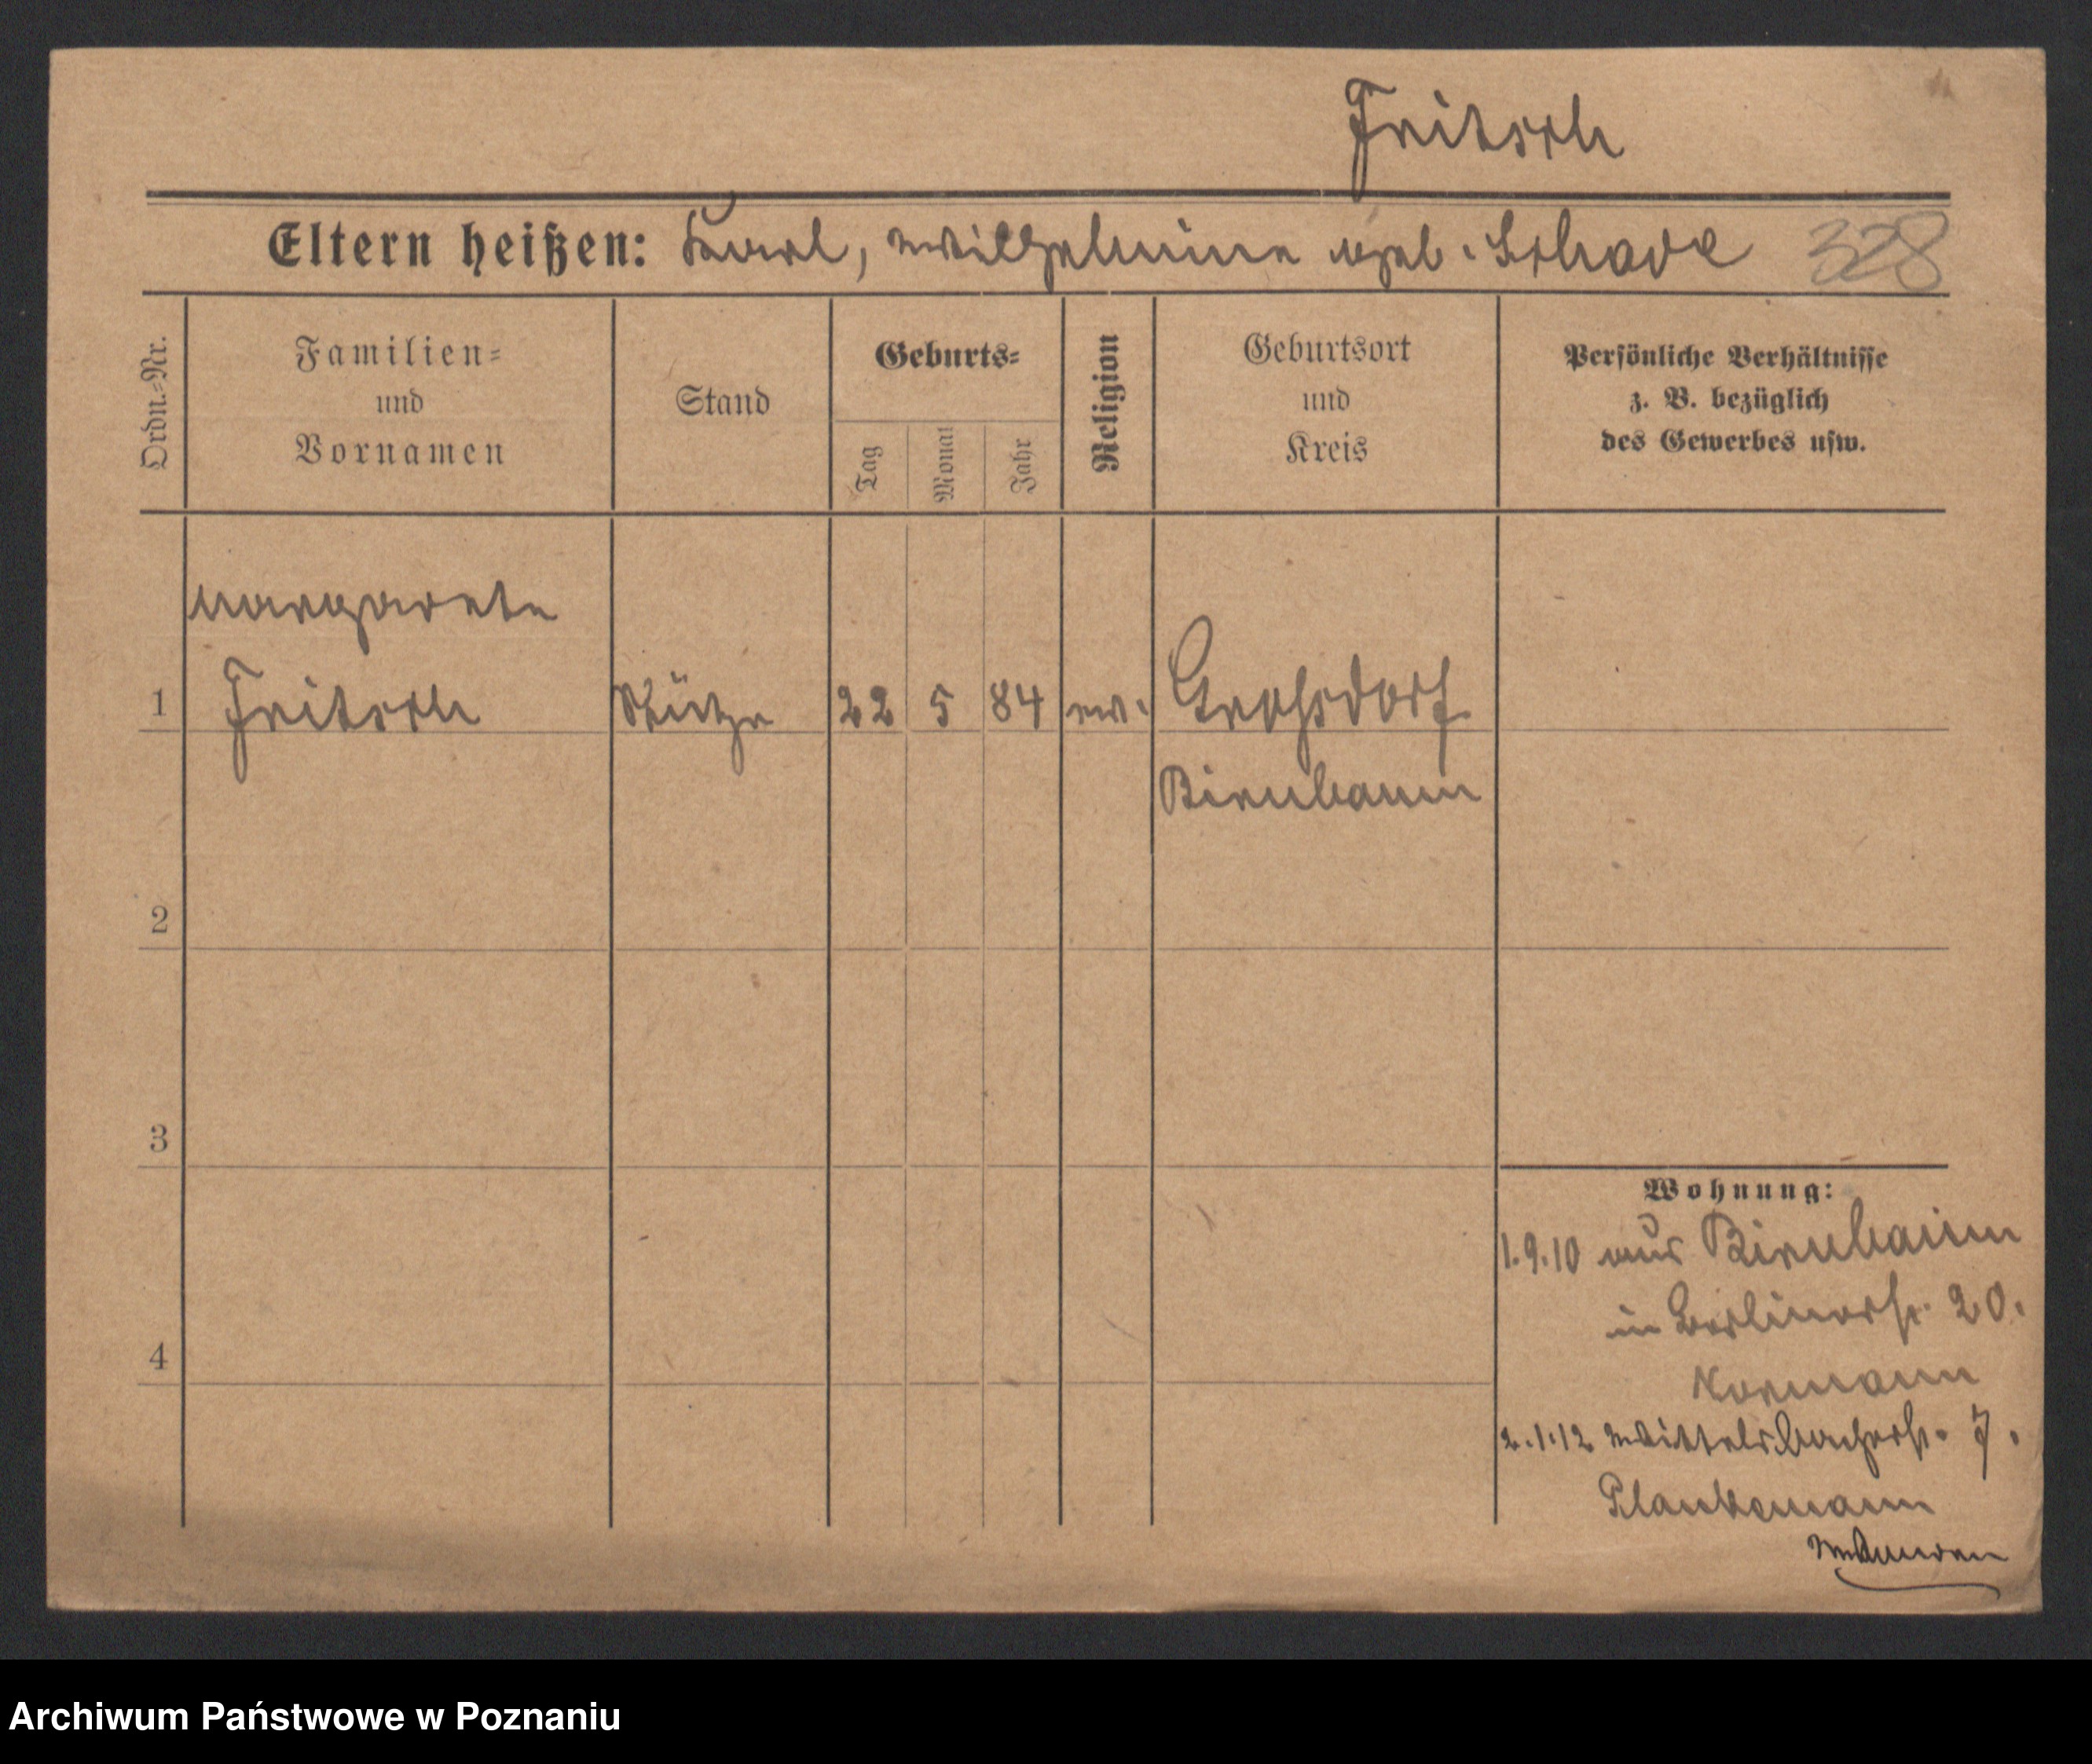 Fritsch
Eltern heißen: Karl, Wilhelmine geb. Schade 328
Ordn.-Nr.
Familien-
und
Vornamen
Stand
Geburts-
Tag
Monat
Jahr
Religion
Geburtsort
und
Kreis
Persönliche Verhältnisse
z. B. bezüglich
des Gewerbes usw.
Margarete
1 Fritsch Stütze 22 5 84 ev. Grossdorf
Birnbaum
2
3
4
Wohnung:
1.9.10 aus Birnbaum
in Berlinerstr. 20.
Kormann
2.1.12 Wittelsbacherstr. 7.
Plankemann